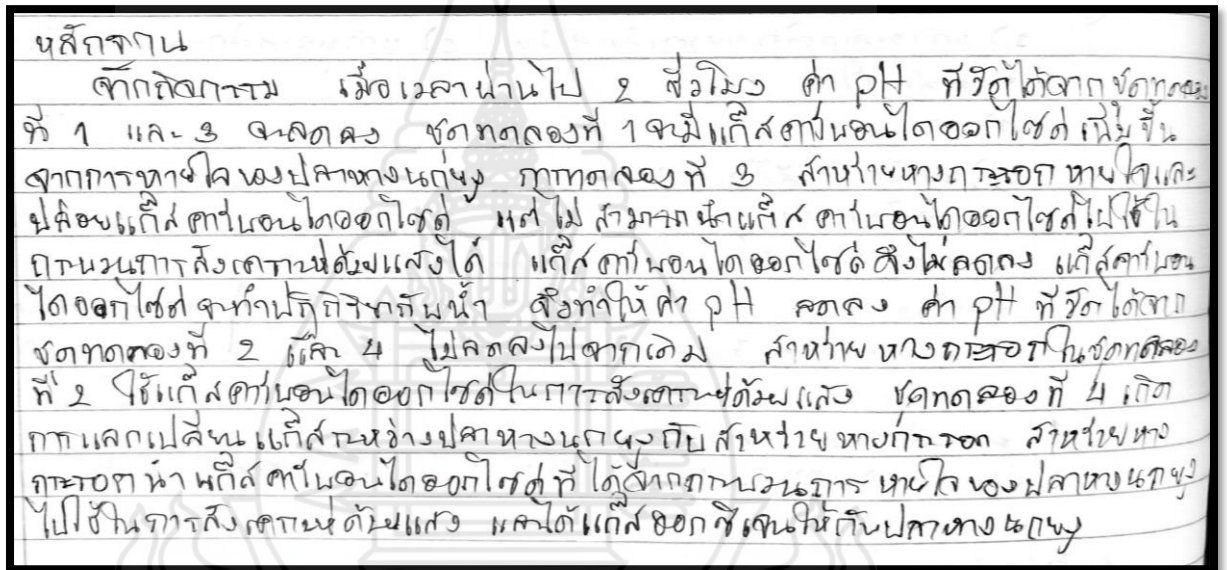 หลักฐาน
จากกิจกรรม เมื่อเวลาผ่านไป 2 ชั่วโมง ค่า pH ที่วัดได้จากชุดทดลอง
ที่ 1 และ 3 จะลดลง ชุดทดลองที่ 1 จะมีแก๊สคาร์บอนไดออกไซด์เพิ่มขึ้น
จากการหายใจของปลาหางนกยูง การทดลองที่ 3 สาหร่ายหางกระรอกหายใจและ
ปล่อยแก๊สคาร์บอนไดออกไซด์ แต่ไม่สามารถนำแก๊สคาร์บอนไดออกไซด์ไปใช้ใน
กระบวนการสังเคราะห์ด้วยแสงได้ แก๊สคาร์บอนไดออกไซด์จึงไม่ลดลง แก๊สคาร์บอน
ไดออกไซด์จะทำปฏิกิริยากับน้ำ จึงทำให้ค่า pH ลดลง ค่า pH ที่วัดได้จาก
ชุดทดลองที่ 2 และ 4 ไม่ลดลงไปจากเดิม สาหร่ายหางกระรอกในชุดทดลอง
ที่ 2 ใช้แก๊สคาร์บอนไดออกไซด์ในการสังเคราะห์ด้วยแสง ชุดทดลองที่ 4 เกิด
การแลกเปลี่ยนแก๊สระหว่างปลาหางนกยูงกับสาหร่ายหางกระรอก สาหร่ายหาง
กระรอกนำแก๊สคาร์บอนไดออกไซด์ที่ได้จากกระบวนการหายใจของปลาหางนกยูง
ไปใช้ในการสังเคราะห์ด้วยแสง และได้แก๊สออกซิเจนให้กับปลาหางนกยูง